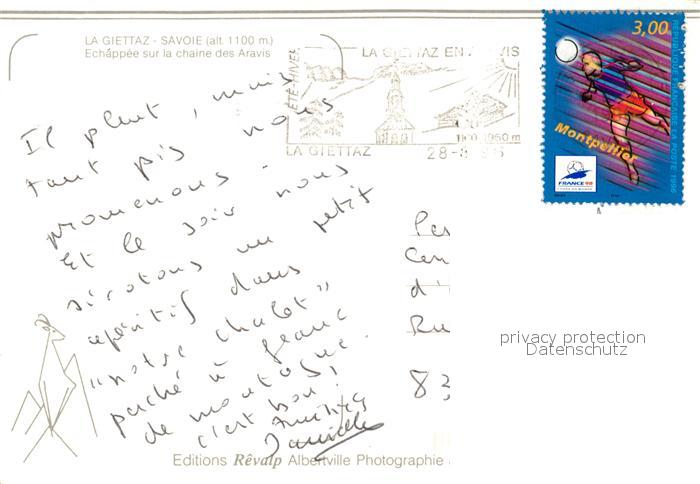 LA GIETTAZ - SAVOIE (alt. 1100 m.)
Echappée sur la chaine des Aravis
ÉTÉ-HIVER
LA GIETTAZ EN ARAVIS
1100-1950 m
LA GIETTAZ
3,00
RÉPUBLIQUE FRANÇAISE LA POSTE 1996
Montpellier
FRANCE 98
Il pleut, mais
tant pis nous
promenons -
Et le soir nous
sirotons un petit
apéritif dans
"notre chalet"
perché à flanc
de montagne.
c'est bon!
Amitiés
Danielle
d'
Ru
privacy protection
Datenschutz
Editions Rêvalp Albertville Photographie